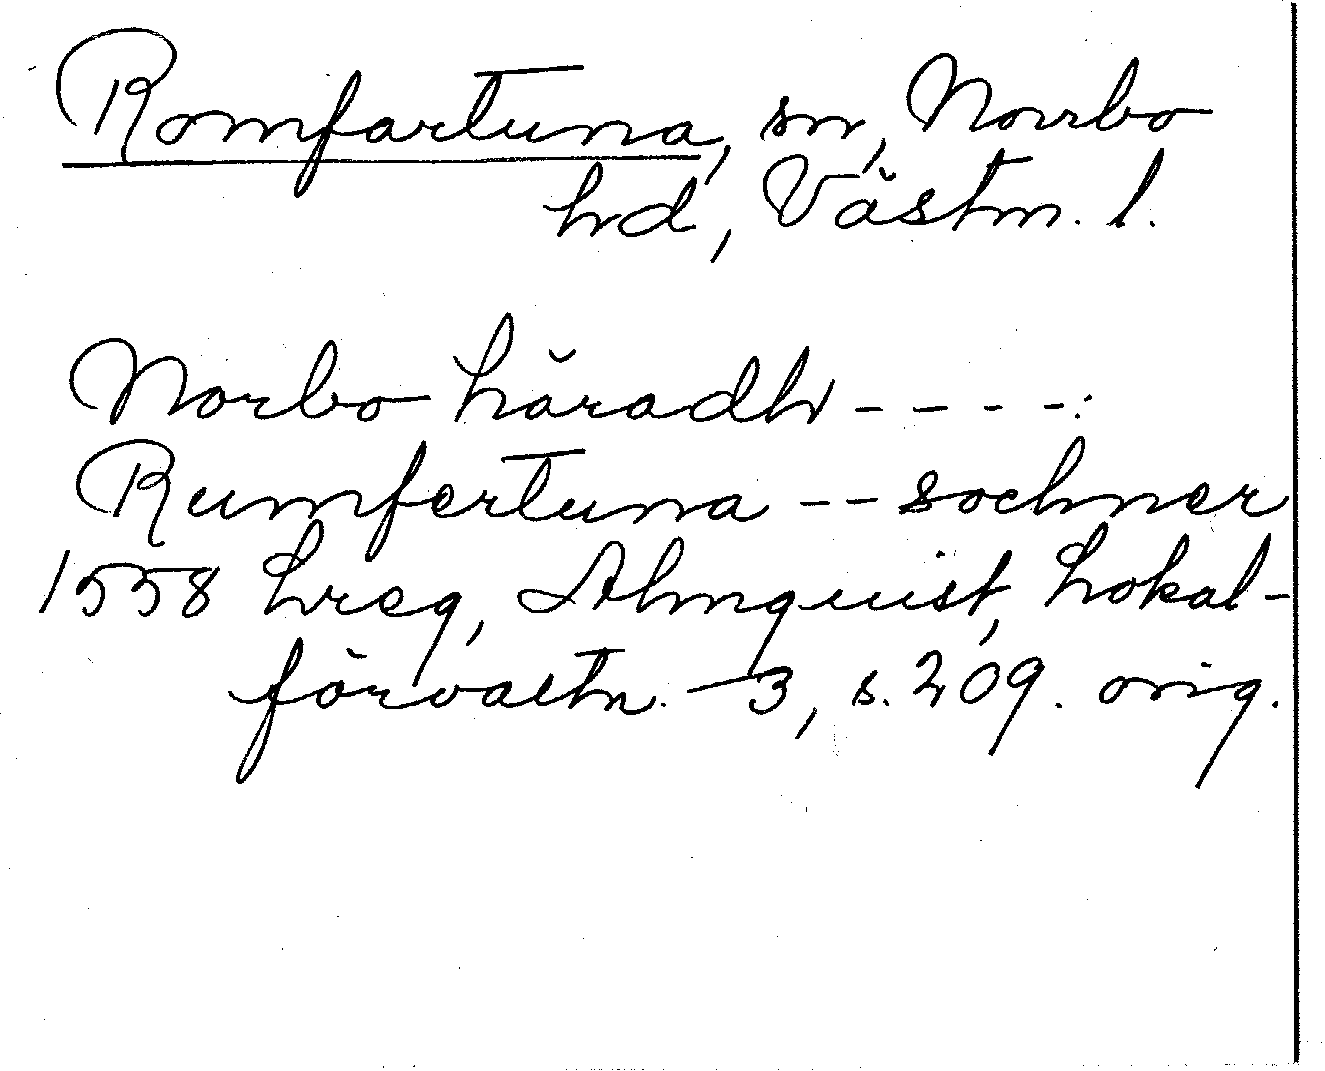 Romfartuna, sn, Norrbo
hd, Västm. l.
Norbo häradh - - - -:
Rumfertuna -- sochner
1558 hreg, Almquist, Lokal-
förvaltn. 3, s. 209. orig.